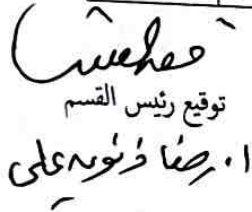 توقيع رئيس القسم
ا. رضا ذنون علي